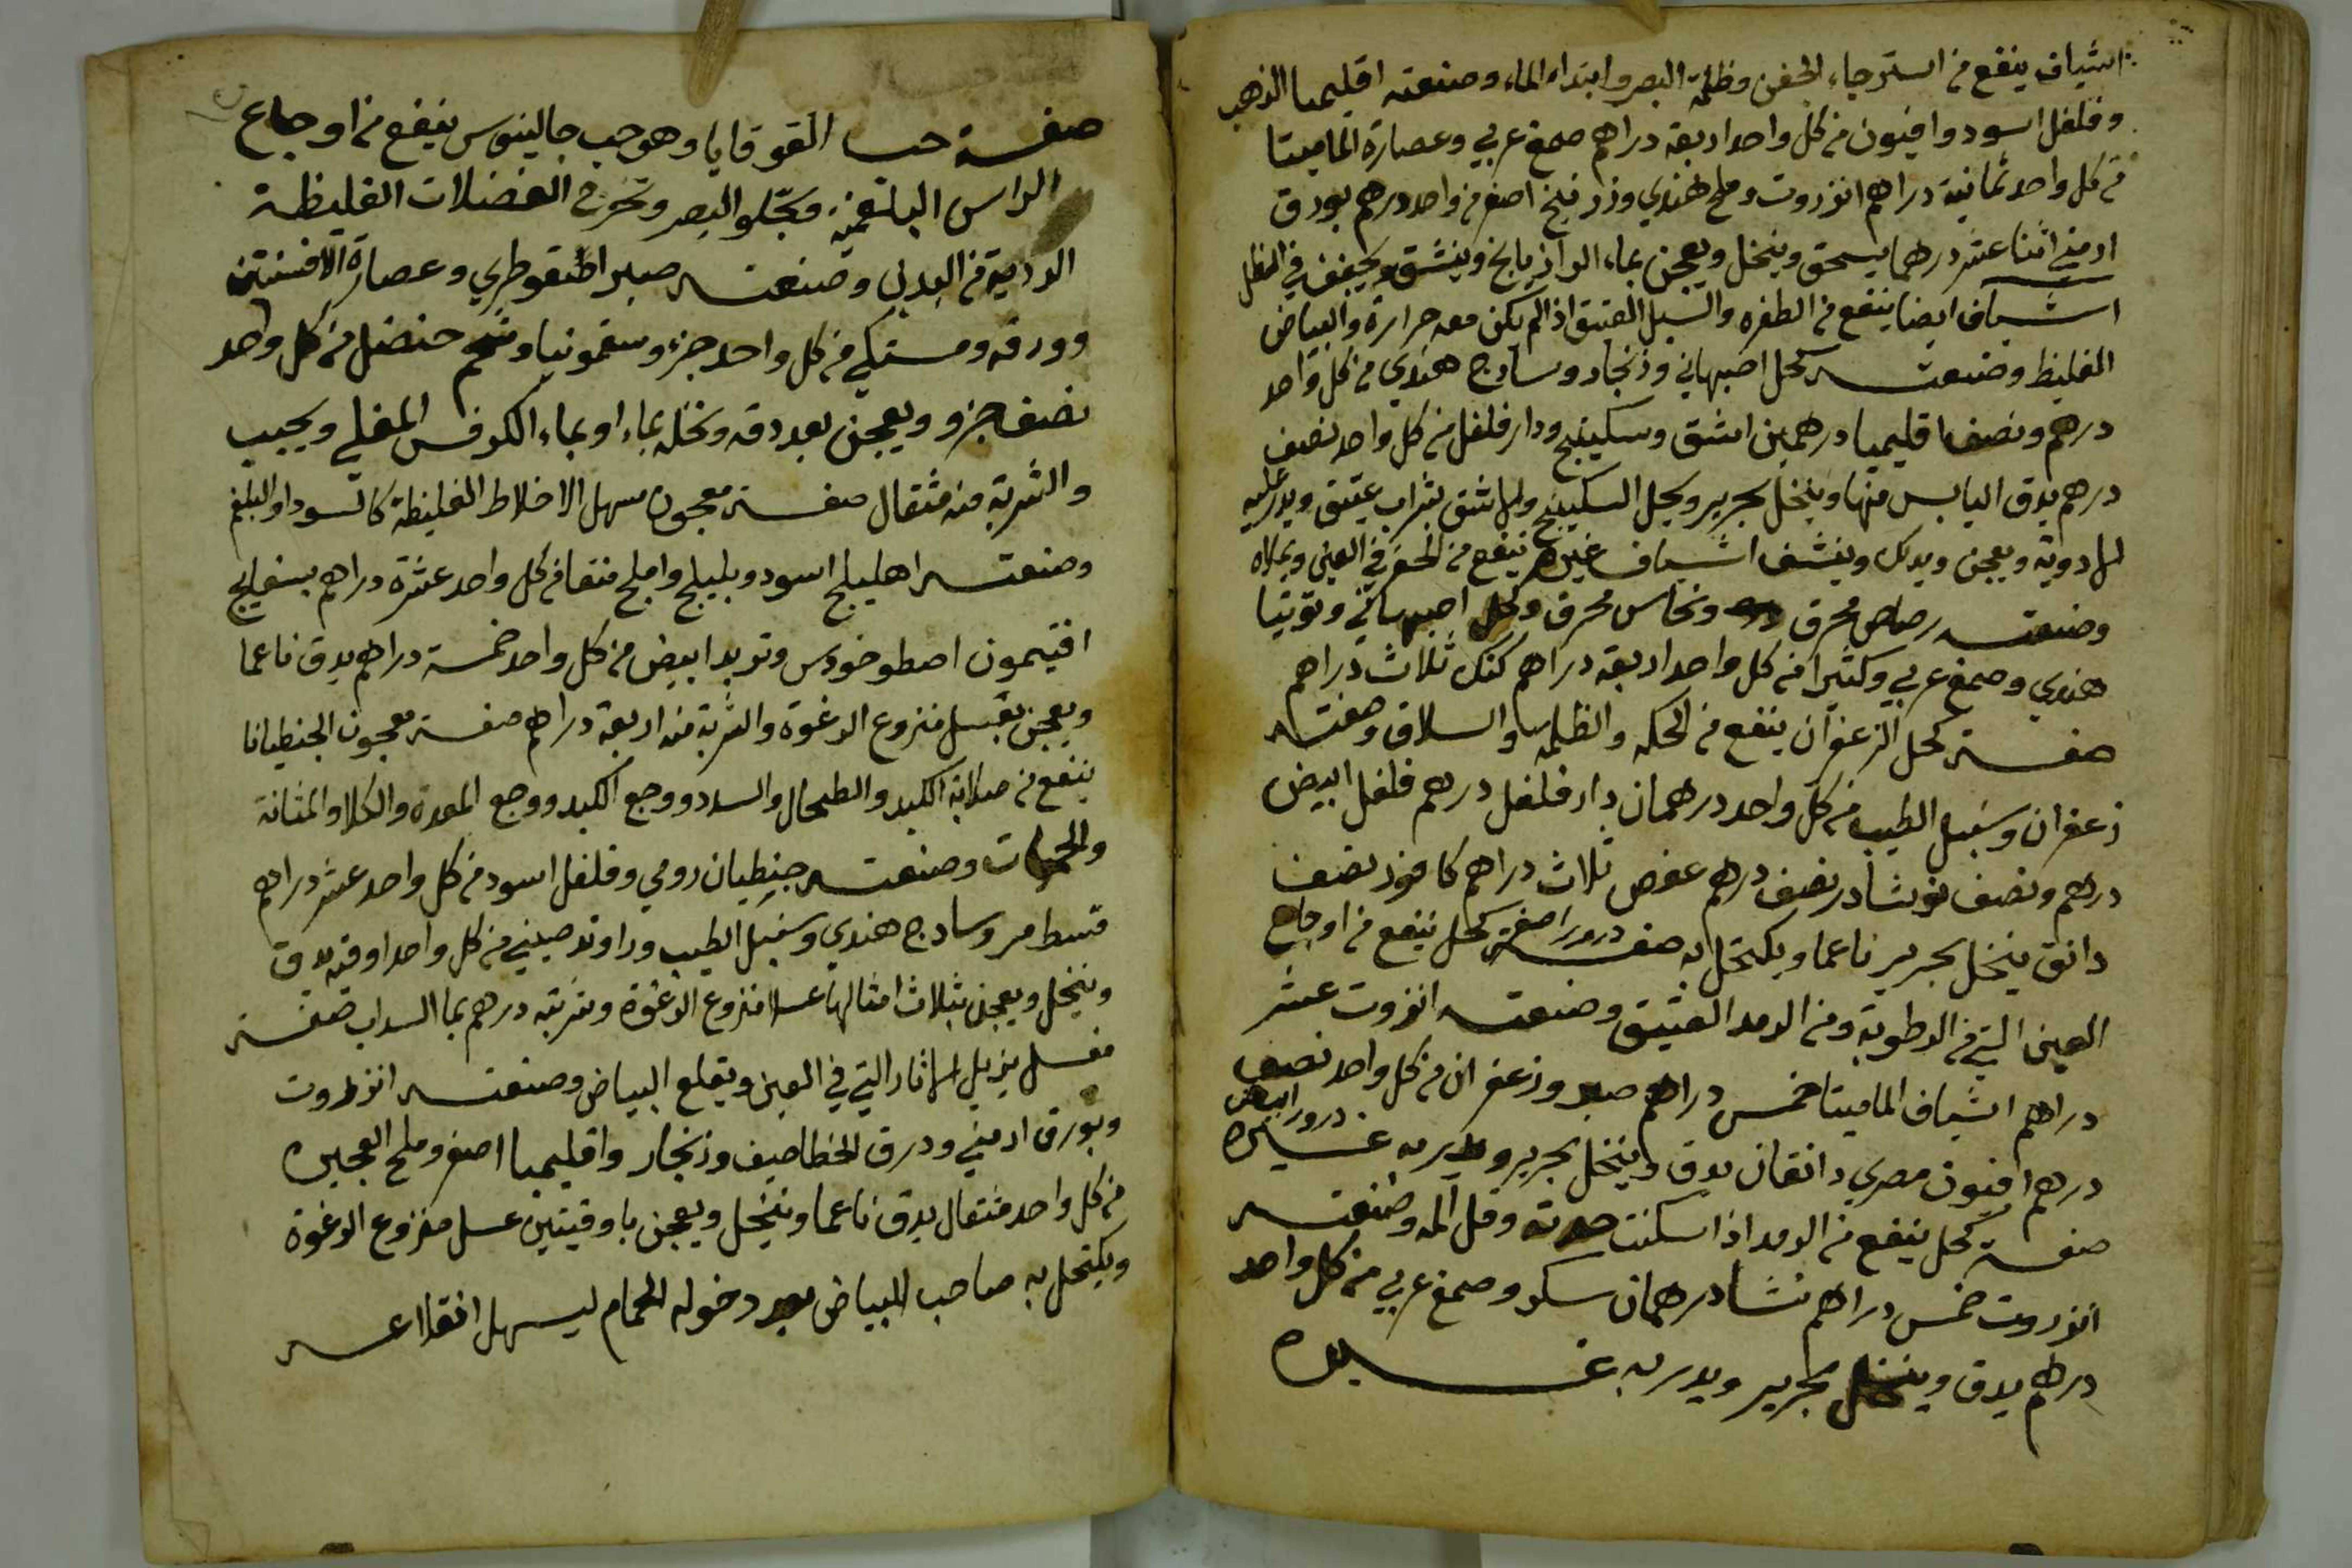 اشياف ينفع من استرخاء الجفن وظلمة البصر وابتداء الماء وصنعته اقليميا الذهب
وفلفل اسود وافيون من كل واحد اربعة دراهم صمغ عربي وعصارة الماميتا
من كل واحد ثمانية دراهم انزروت وملح هندي وزرنيخ اصفر من واحد درهم بورق
ارمني اثنا عشر درهما يسحق وينخل ويعجن بماء الرازيانج وينشق ويجفف في الظل
اشياف ايضا ينفع من الظفره والسبل العتيق اذا لم يكن معه حرارة والبياض
الغليظ وصنعته كحل اصبهاني وزنجار وسادج هندي من كل واحد
درهم ونصف اقليميا درهمين اشق وسكبينج ودار فلفل من كل واحد نصف
درهم يدق اليابس منها وينخل بحرير ويحل السكبينج والاشق بشراب عتيق ويدر عليه
الادوية ويعجن ويدلك وينشف اشياف غيره ينفع من الحفر في العين ويملاه
وصنعته رصاص محرق ونحاس محرق وكحل اصبهاني وتوتيا
هندي وصمغ عربي وكتيرا من كل واحد اربعة دراهم كندر ثلاث دراهم
صفة كحل الزعفران ينفع من الحكه والظلمه والسلاق وصفته
زعفران وسنبل الطيب من كل واحد درهمان دار فلفل درهم فلفل ابيض
درهم ونصف نوشادر نصف درهم عفص ثلاث دراهم كافور نصف
دانق ينخل بحرير ناعما ويكتحل به صفة درور اصفر كحل ينفع من اوجاع
العين التي من الرطوبة ومن الرمد العتيق وصنعته انزروت عشر
دراهم اشياف الماميتا خمس دراهم صبر وزعفران من كل واحد نصف
درهم افيون مصري دانقان يدق وينخل بحرير ويدر به غيره درور ابيض
صفة كحل ينفع من الرمد اذا سكنت حدته وقل المه وصنعته
انزروت خمس دراهم نشا درهمان سكر وصمغ عربي من كل واحد
درهم يدق وينخل بحرير ويدر به غيره
صفة حب القوقايا وهو حب جالينوس ينفع من اوجاع
الراس البلغمية ويجلو البصر وتخرج الفضلات الغليظة
الردية من البدن وصنعته صبر اسقوطري وعصارة الافسنتين
وورقه ومستكي من كل واحد جزء وسقمونيا وشحم حنضل من كل واحد
نصف جزو ويعجن بعد دقه ونخله بماء او بماء الكرفس المغلي ويحبب
والشربة منه مثقال صفة معجون مسهل الاخلاط الغليظة كالسودا والبلغم
وصنعته اهليلج اسود وبليلج واملج منقا من كل واحد عشرة دراهم بسفايج
افتيمون اصطوخودس وتربد ابيض من كل واحد خمسة دراهم يدق ناعما
ويعجن بعسل منزوع الرغوة والشربة منه اربعة دراهم صفة معجون الجنطيانا
ينفع من صلابة الكبد والطحال والسدد ووجع الكبد ووجع المعدة والكلا والمثانة
والحميات وصنعته جنطيان رومي وفلفل اسود من كل واحد عشر دراهم
قسط مر وسادج هندي وسنبل الطيب وراوند صيني من كل واحد اوقية يدق
وينخل ويعجن بثلاث امثالها عسلا منزوع الرغوة وشربته درهم بما السداب صفة
عسل يزيل الاثار التي في العين ويقلع البياض وصنعته انزروت
وبورق ارمني ودرق الخطاصيف وزنجار واقليميا اصفر وملح العجين
من كل واحد مثقال يدق ناعما وينخل ويعجن باوقيتين عسل منزوع الرغوة
ويكتحل به صاحب البياض بعد دخوله الحمام ليسهل انقلاعه